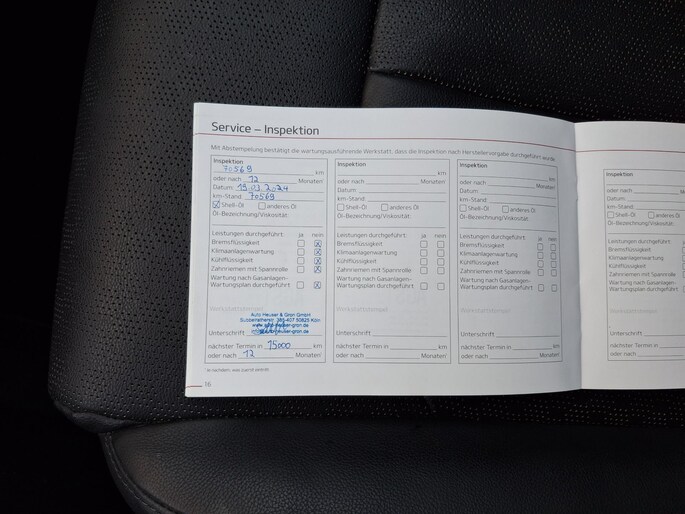 Service – Inspektion
Mit Abstempelung bestätigt die wartungsausführende Werkstatt, dass die Inspektion nach Herstellervorgabe durchgeführt wurde.
Inspektion
70569 km
oder nach 12 Monaten¹
Datum 19.03.2024
km-Stand 70569
Shell-Öl anderes Öl
Öl-Bezeichnung/Viskosität:
Leistungen durchgeführt: ja nein
Bremsflüssigkeit
Klimaanlagenwartung
Kühlflüssigkeit
Zahnriemen mit Spannrolle
Wartung nach Gasanlagen-
Wartungsplan durchgeführt
Werkstattstempel:
Auto Heuser & Gron GmbH
50825 Köln
Unterschrift
nächster Termin in 15000 km
oder nach 12 Monaten¹
16
Inspektion
km
oder nach Monaten¹
Datum
km-Stand
Shell-Öl anderes Öl
Öl-Bezeichnung/Viskosität:
Leistungen durchgeführt: ja nein
Bremsflüssigkeit
Klimaanlagenwartung
Kühlflüssigkeit
Zahnriemen mit Spannrolle
Wartung nach Gasanlagen-
Wartungsplan durchgeführt
Werkstattstempel:
Unterschrift
nächster Termin in km
oder nach Monaten¹
Inspektion
km
oder nach Monaten¹
Datum
km-Stand
Shell-Öl anderes Öl
Öl-Bezeichnung/Viskosität:
Leistungen durchgeführt: ja nein
Bremsflüssigkeit
Klimaanlagenwartung
Kühlflüssigkeit
Zahnriemen mit Spannrolle
Wartung nach Gasanlagen-
Wartungsplan durchgeführt
Werkstattstempel:
Unterschrift
nächster Termin in km
oder nach Monaten¹
Inspektion
oder nach
Datum
km-Stand
Shell-Öl
Öl-Bezeichnung/Visk
Leistungen durchgef
Bremsflüssigkeit
Klimaanlagenwartun
Kühlflüssigkeit
Zahnriemen mit Spa
Wartung nach Gasan
Wartungsplan durch
Unterschrift
nächster Termin in
oder nach